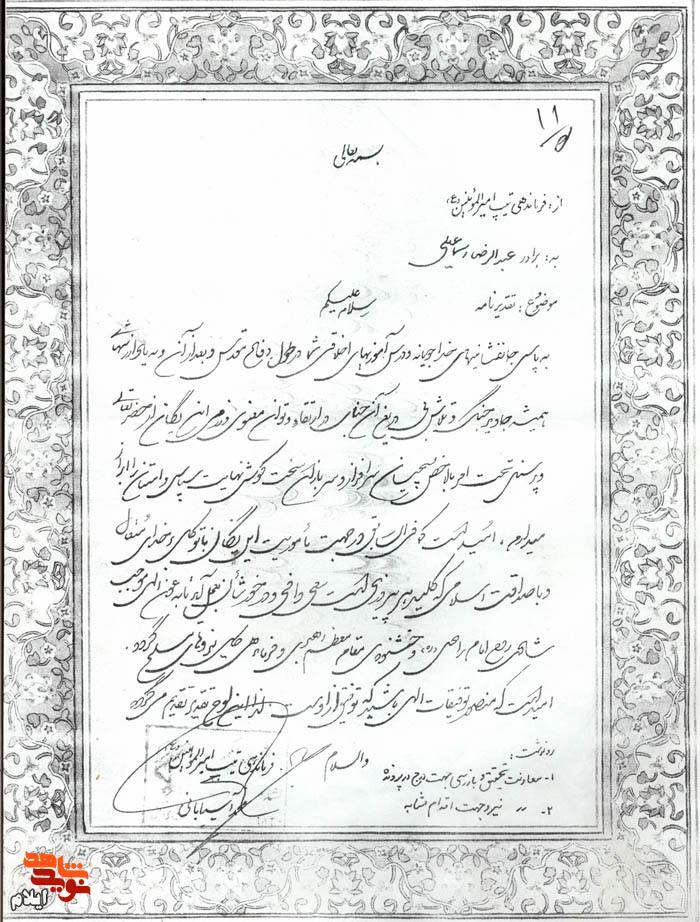 ۱۱
بسمه تعالی
از: فرماندهی تیپ امیرالمؤمنین (ع)
به: برادر عبدالرضا اسماعیلی
موضوع: تقدیرنامه
سلام علیکم
به پاس جانفشانیهای خداجویانه و درس آموزیهای اخلاقی شما در طول دفاع مقدس و بعد از آن و به یاد ارزشهای
همیشه جاوید جنگ و تلاش بی دریغ آن جناب در ارتقاء و توان معنوی و رزمی این یگان از حضرتعالی
و پرسنل تحت امر بالاخص بسیجیان سرافراز و سربازان سخت کوش نهایت سپاس و امتنان را ابراز
میدارم، امید است که در جهت مأموریت این یگان با توکل بر خدای متعال
و با صداقت اسلامی که کلید هر پیروزی است سعی وافی و در خور شأن بعمل آید تا به عون الهی موجب
شادی روح امام راحل (ره) و خشنودی مقام معظم رهبری و فرماندهی کل نیروهای مسلح گردد.
امید است که منصور توفیقات الهی باشید که توفیق از اوست لذا این لوح تقدیر تقدیم می گردد
والسلام
فرماندهی تیپ امیرالمؤمنین (ع)
آسیابانی
رونوشت:
۱- معاونت تحقیق و بازرسی جهت درج در پرونده
۲- ,, نیرو جهت اقدام مشابه
نوید شاهد
ایلام